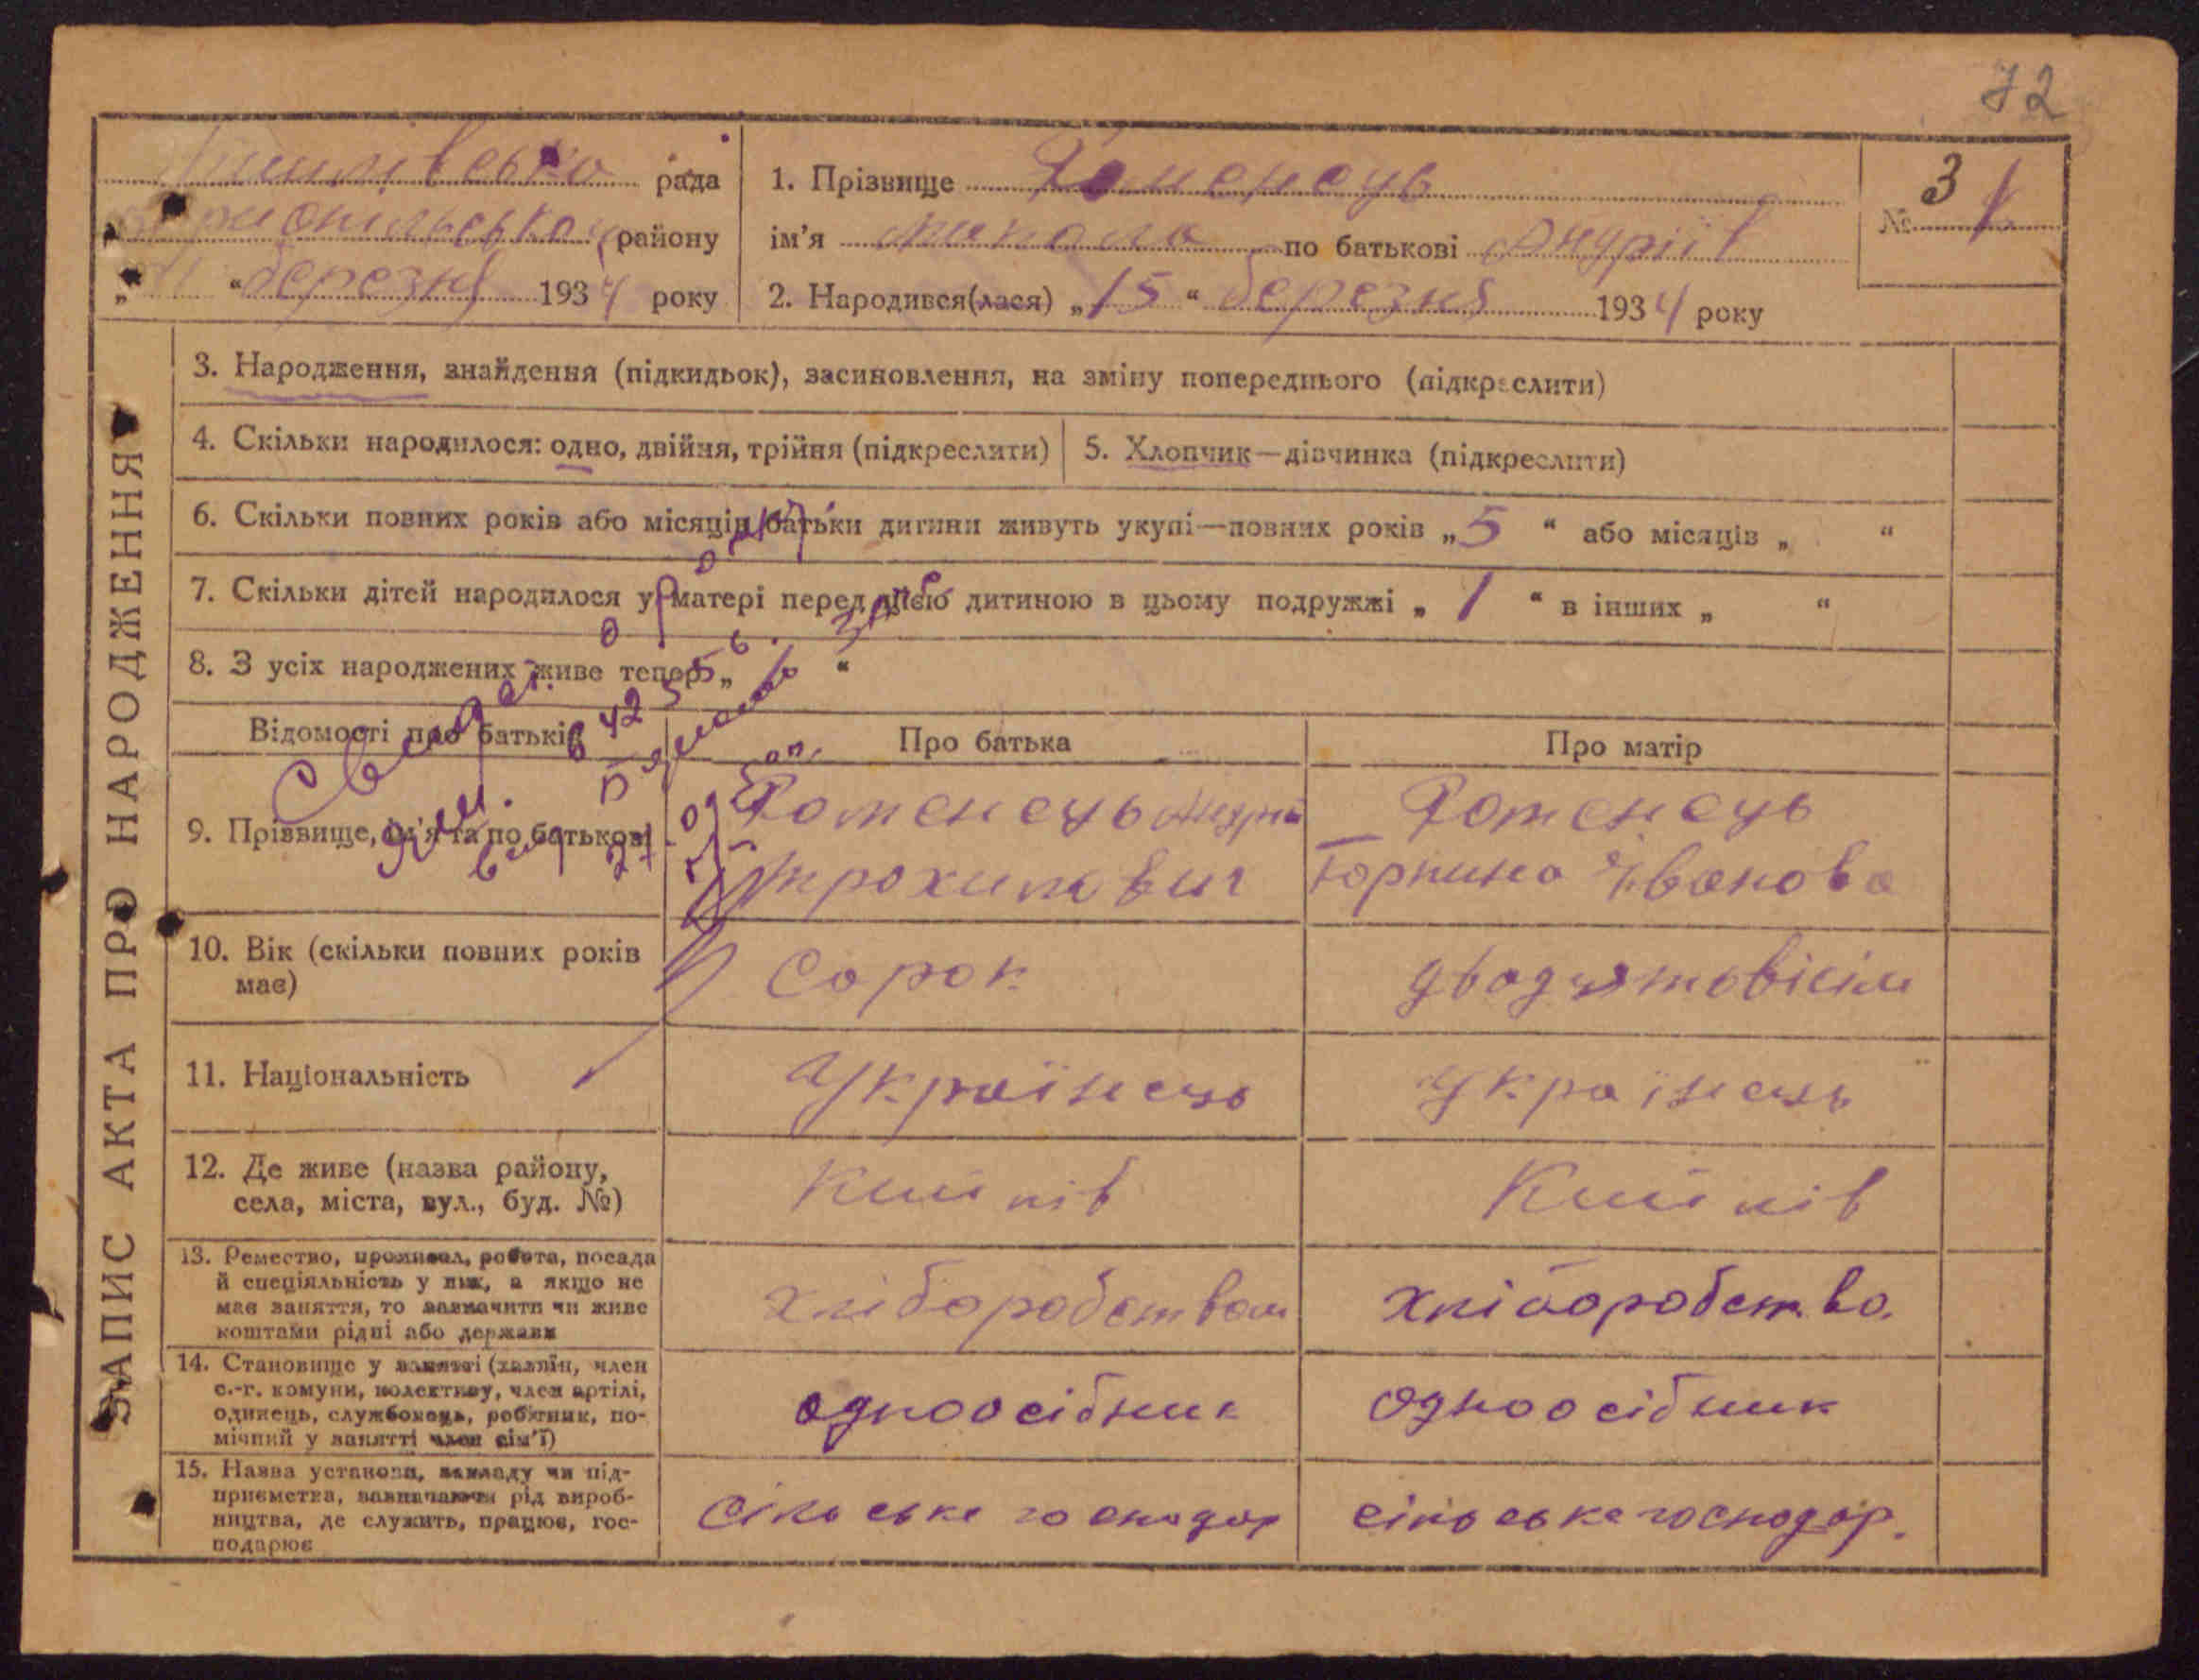 72
рада
1. Прізвище Роменець
№ 3
району
ім'я Микола по батькові Андріїв
" березня 1934 року
2. Народився(лася) „15“ березня 1934 року
ЗАПИС АКТА ПРО НАРОДЖЕННЯ
3. Народження, знайдення (підкидьок), засиновлення, на зміну попереднього (підкреслити)
4. Скільки народилося: одно, двійня, трійня (підкреслити)
5. Хлопчик—дівчинка (підкреслити)
6. Скільки повних років або місяців батьки дитини живуть укупі—повних років „5“ або місяців „ “
7. Скільки дітей народилося у матері перед цією дитиною в цьому подружжі „1“ в інших „ “
8. З усіх народжених живе тепер „ “
Відомості про батьків
Про батька
Про матір
9. Прізвище, ім'я та по батькові
Роменець Андрій
Трохимович
Роменець
Горпина Іванова
10. Вік (скільки повних років
має)
Сорок
двадцятьвісім
11. Національність
Українець
Українець
12. Де живе (назва району,
села, міста, вул., буд. №)
Кийлів
Кийлів
13. Ремество, промисел, робота, посада
й спеціяльність у них, а якщо не
має заняття, то зазначити чи живе
коштами рідні або держави
хліборобством
хлібороbство.
14. Становище у занятті (хазяїн, член
с.-г. комуни, колективу, член артілі,
одинець, службовець, робітник, по-
мічний у занятті член сім'ї)
одноосібник
одноосібник
15. Назва установи, закладу чи під-
приємства, зазначаючи рід вироб-
ництва, де служить, працює, гос-
подарює
сільське господар
сільське господар.